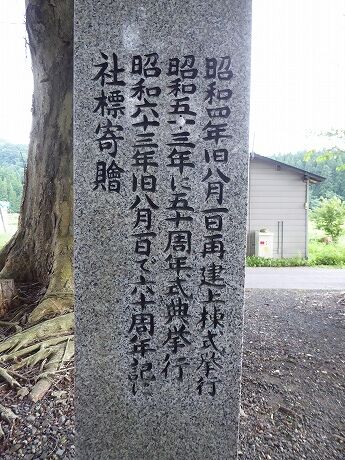 昭和四年旧八月一日再建上棟式挙行
昭和五十三年に五十周年式典挙行
昭和六十三年旧八月一日で六十周年記に
社標寄贈